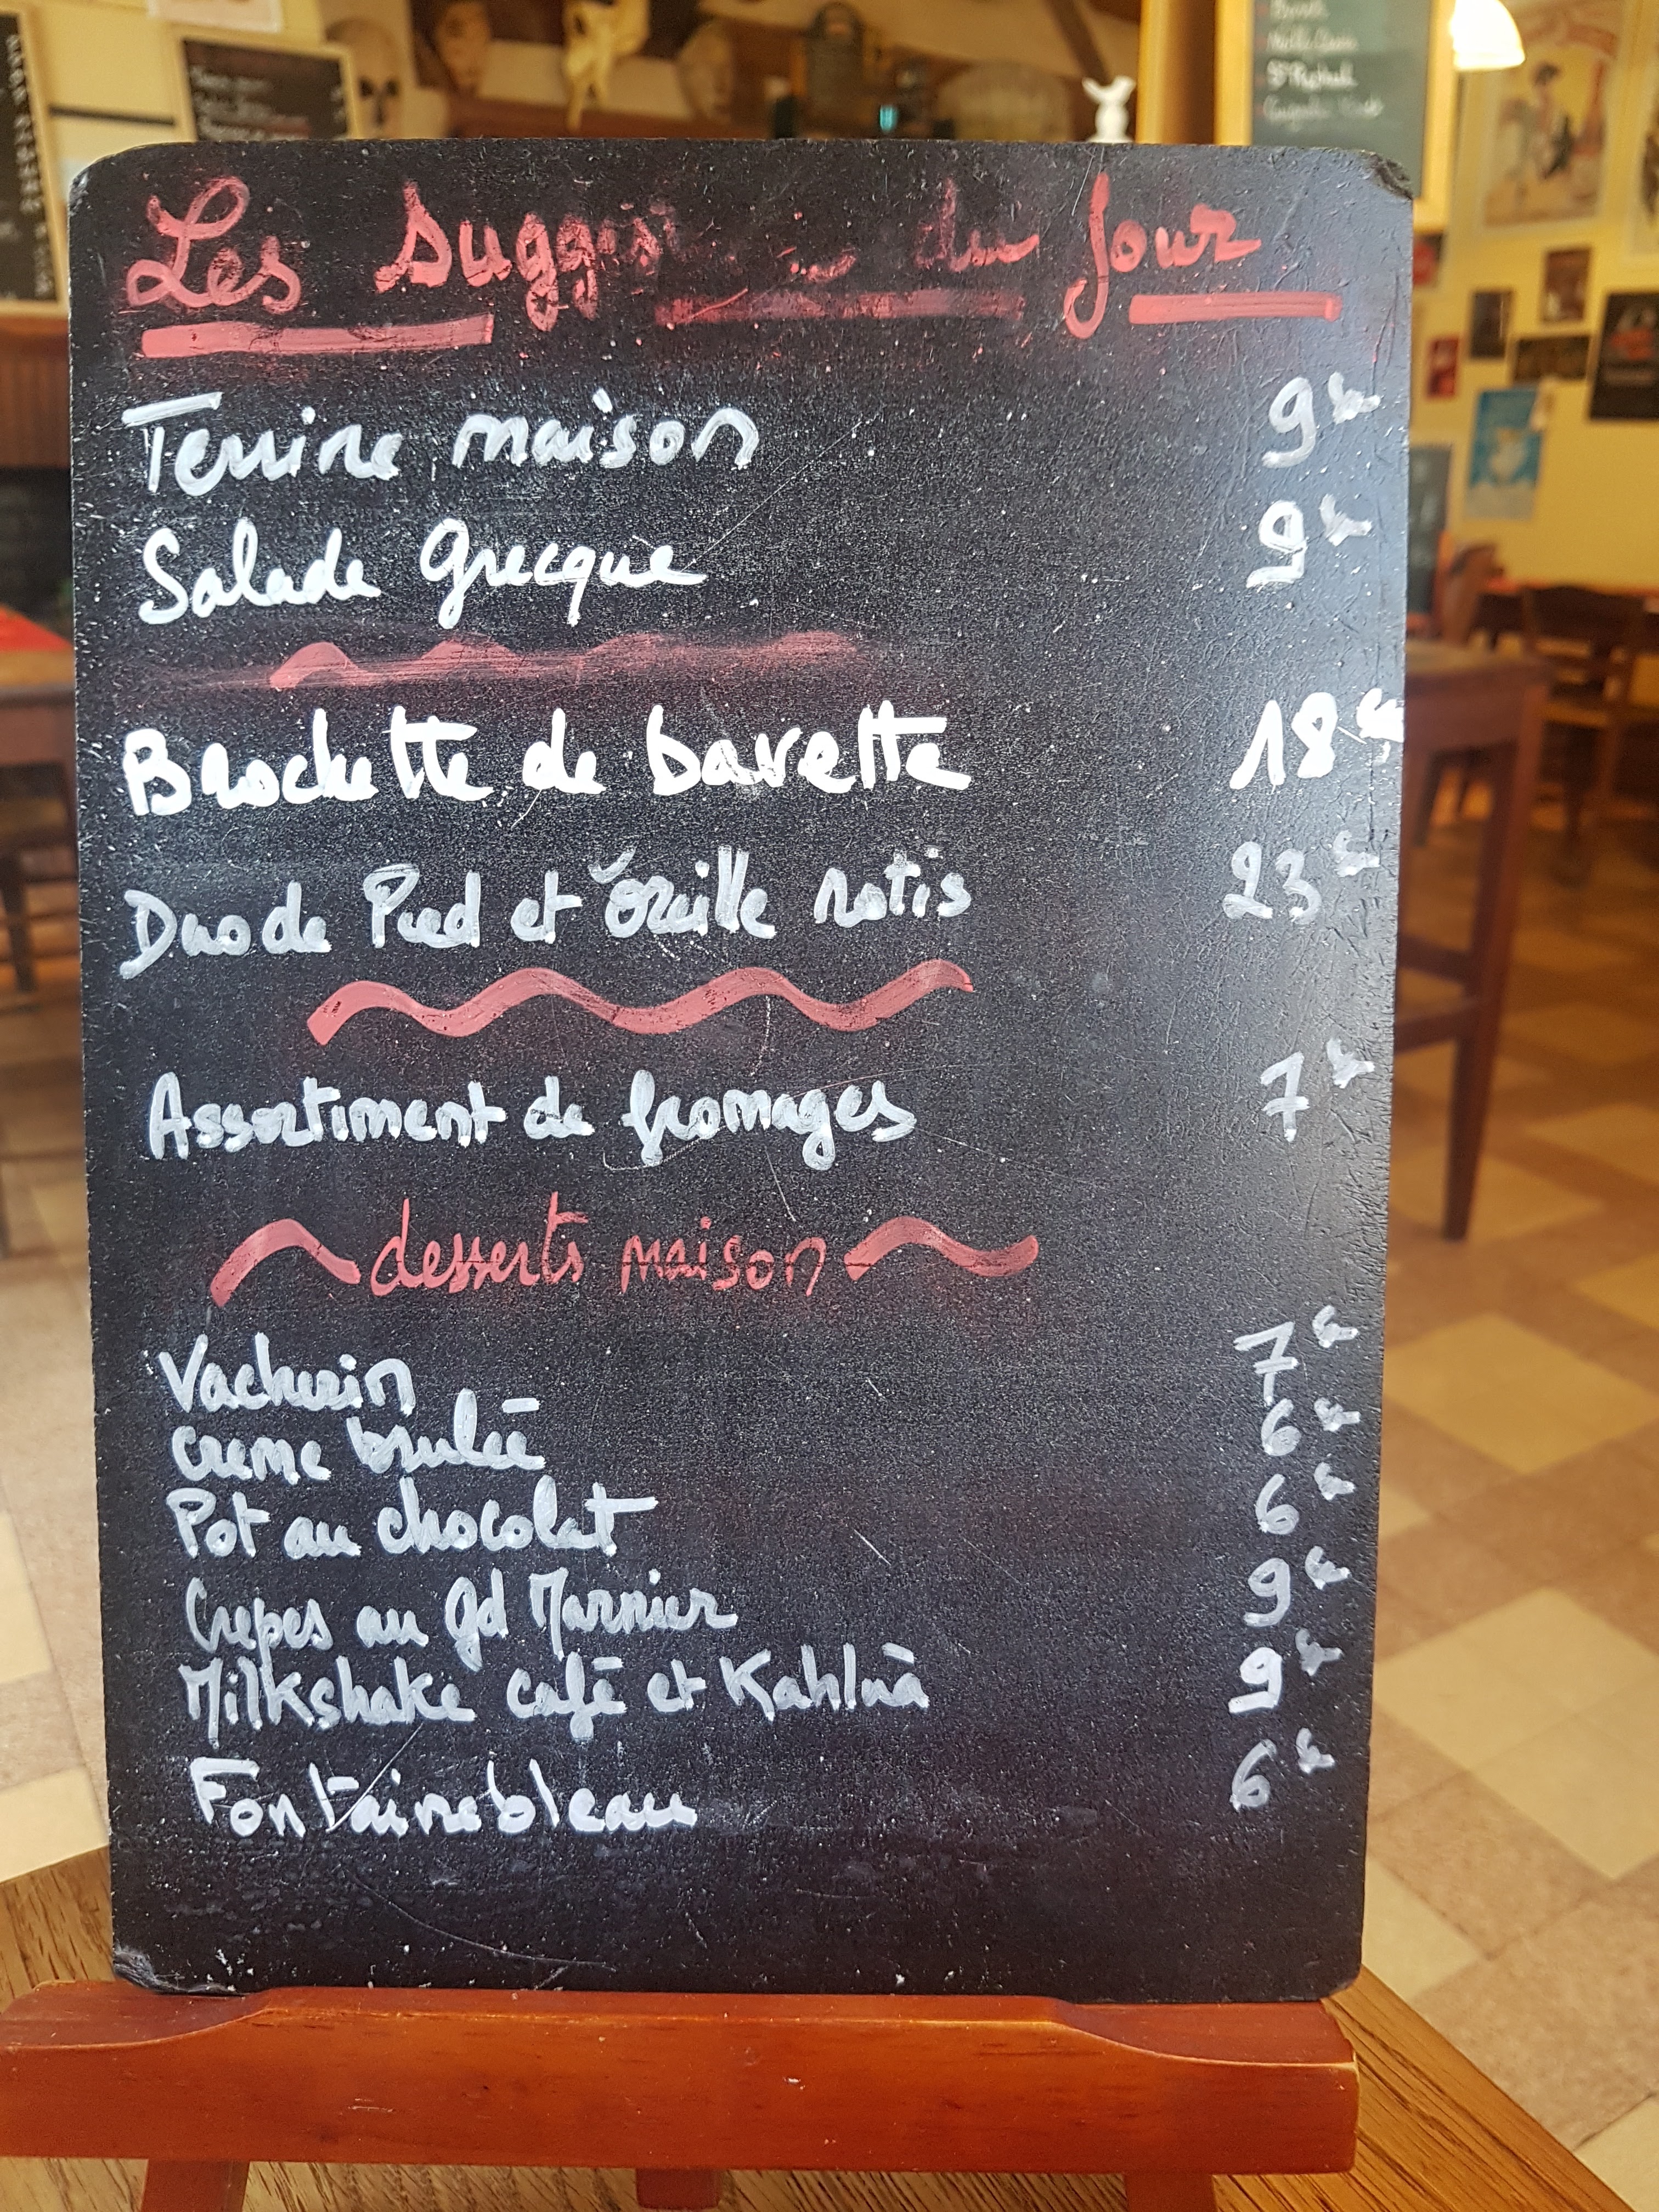 Les du Jour
Terrine maison 9€
Salade grecque 9€
Brochette de bavette 18€
Duo de Pied et Oreille rotis 23€
Assortiment de fromages 7€
desserts maison
Vacherin 7€
Creme brulée 6€
Pot au chocolat 6€
Crepes au Gd Marnier 9€
Milkshake café et Kahluà 9€
Fontainebleau 6€